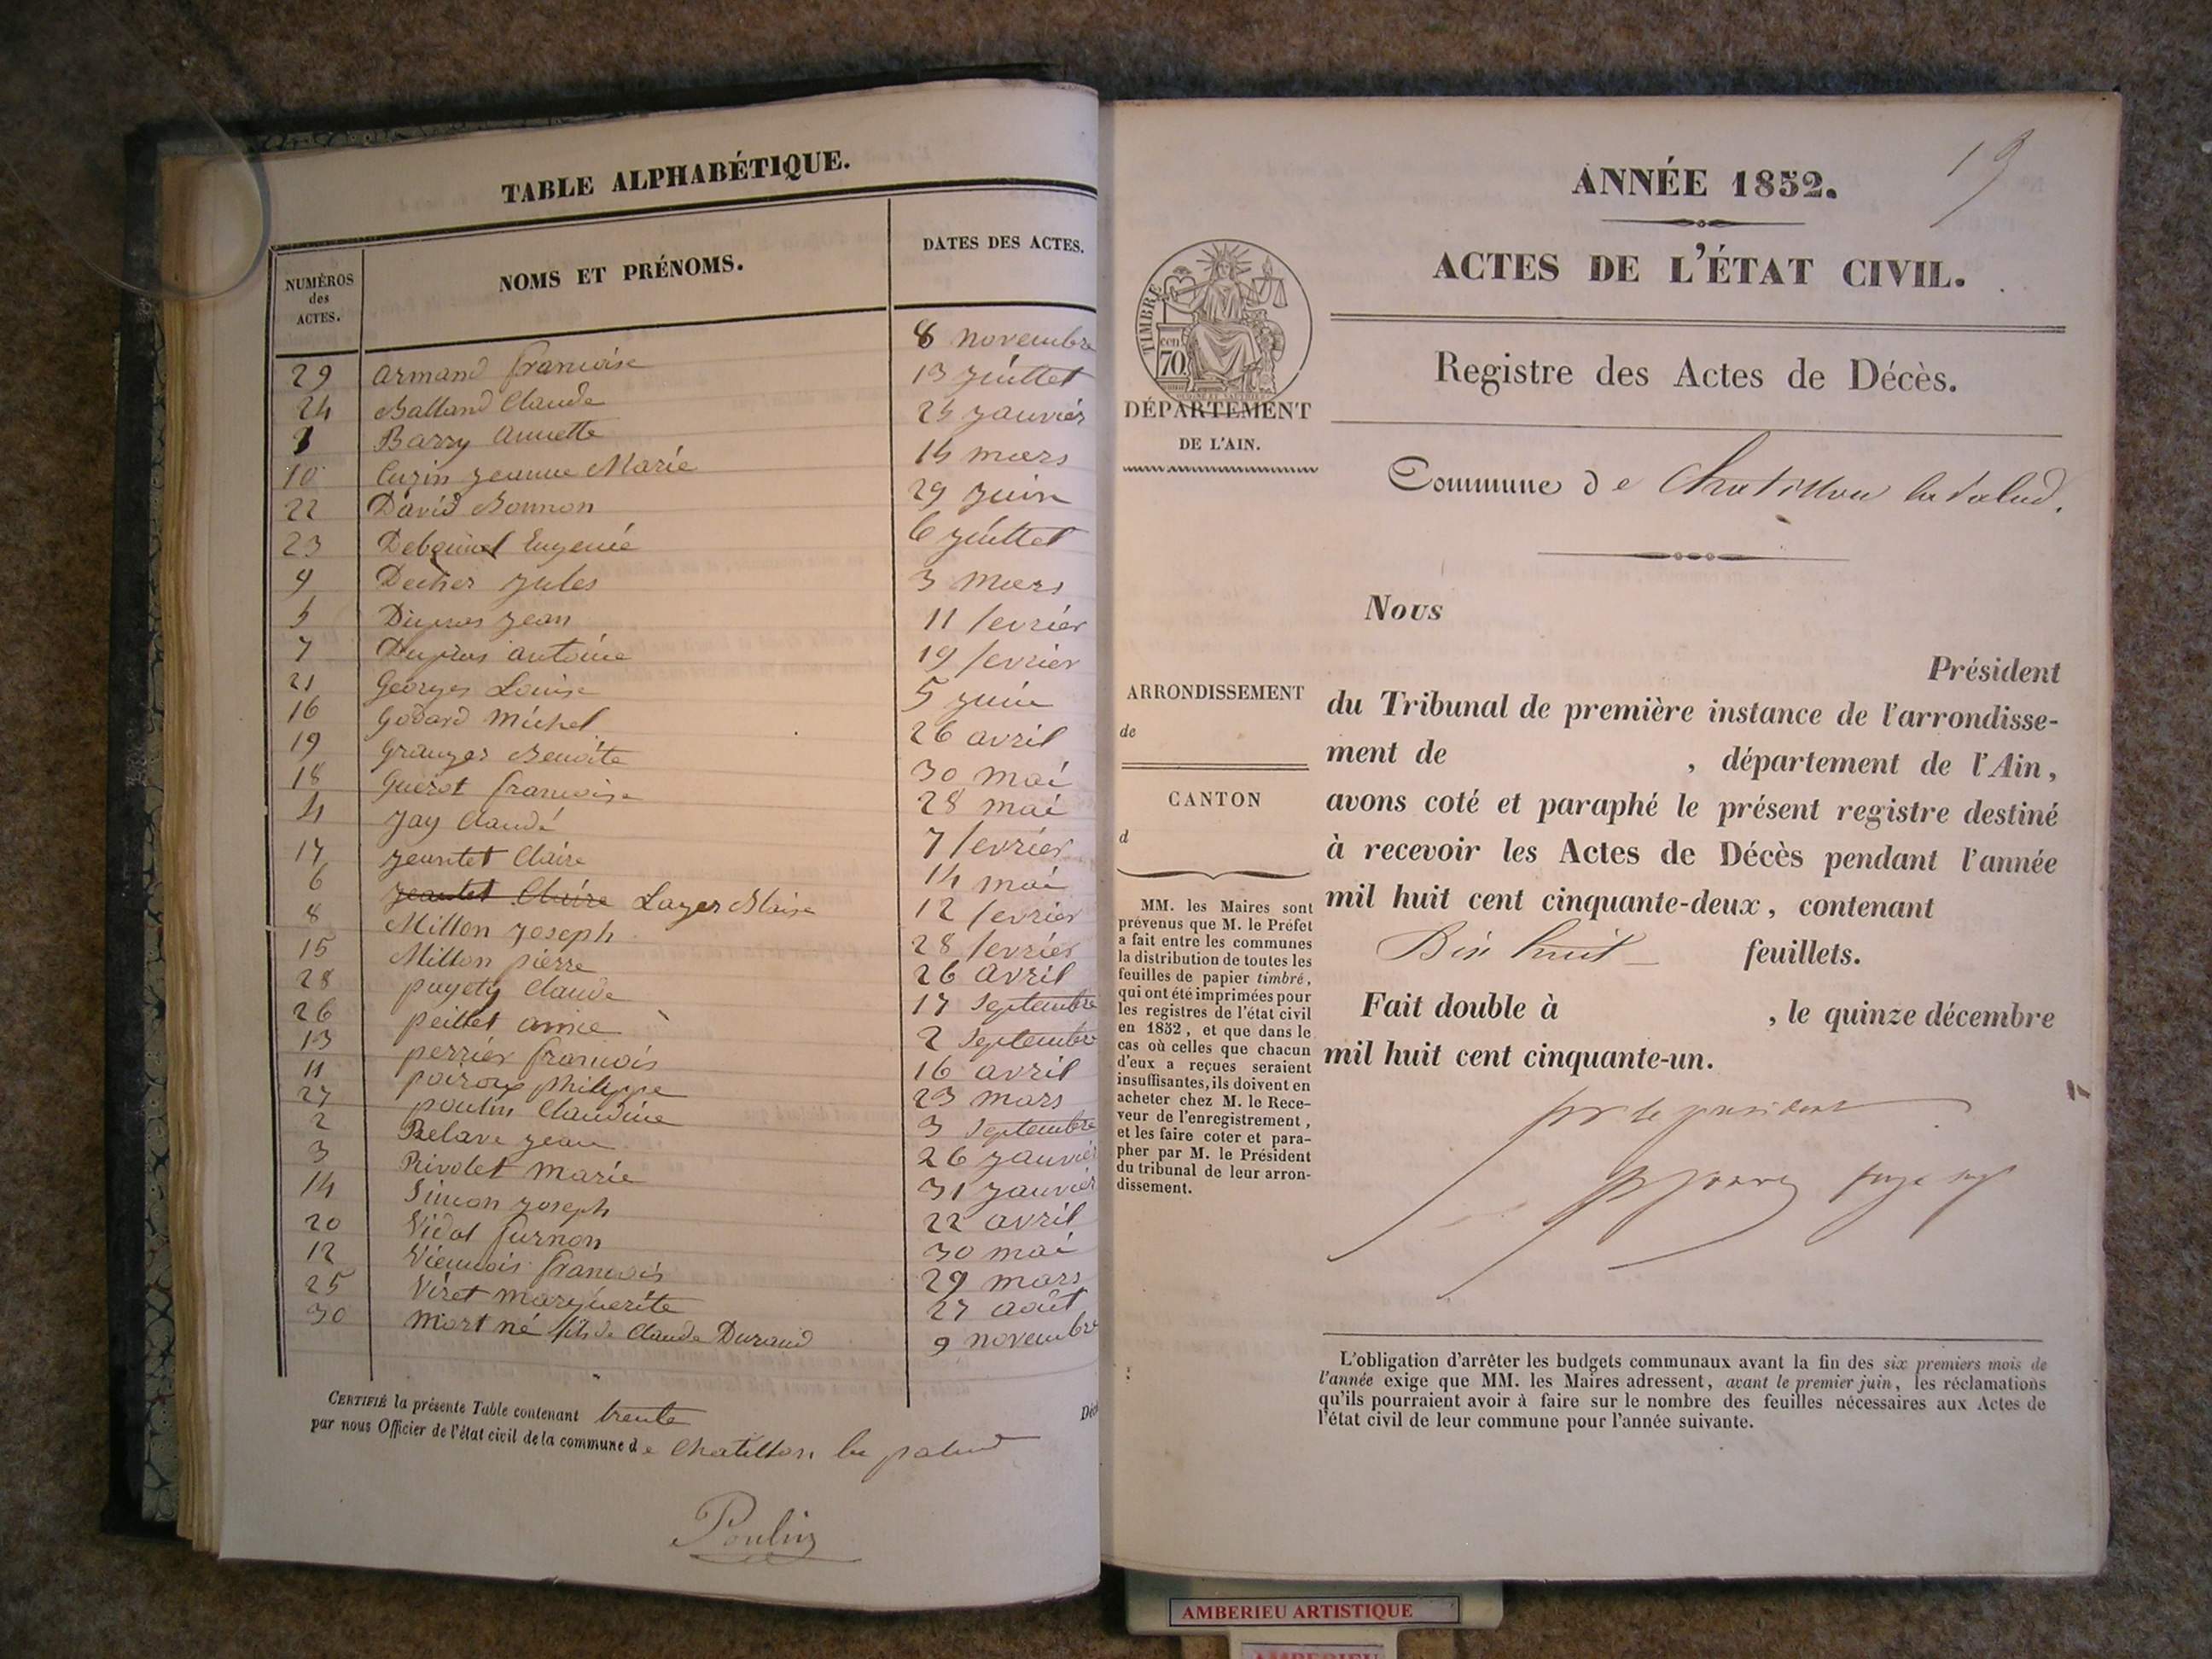 TABLE ALPHABÉTIQUE.
NUMÉROS des ACTES. NOMS ET PRÉNOMS. DATES DES ACTES.
29 Armand francoise 8 novembre
24 Balland Claude 13 juillet
1 Barry Annette 25 janvier
10 Cuzin jeanne Marie 14 mars
22 David Bonmon 29 juin
23 Eugenie 6 juillet
9 jules 3 mars
5 jean 11 fevrier
7 Dupras antoine 19 fevrier
21 Georges Louise 5 juin
16 Godard Michel 26 avril
19 Granger Benoite 30 mai
18 Guérot francoise 28 mai
4 Jay Claude 7 fevrier
17 jeantet Claire 14 mai
6 jeantet Claire Layer Blaise 12 fevrier
8 Millon joseph 28 fevrier
15 Millon pierre 26 avril
28 Claude 17 Septembre
26 peillet 2 Septembre
13 perrier francois 16 avril
11 philippe 23 mars
27 poulin Claudine 3 Septembre
2 Relave jean 26 janvier
3 Rivolet marie 31 janvier
14 Simon joseph 22 avril
20 Vidal furnon 30 mai
12 Viennois francois 29 mars
25 Viret marguerite 27 août
30 Mort né fils de Claude Durand 9 novembre
CERTIFIÉ la présente Table contenant trente
par nous Officier de l'état civil de la commune de Chatillon la palud
Poulin
19
ANNÉE 1852.
ACTES DE L'ÉTAT CIVIL.
TIMBRE
cen
70
Registre des Actes de Décès.
DÉPARTEMENT
DE L'AIN.
Commune de Chatillon la palud.
Nous
Président
du Tribunal de première instance de l'arrondisse-
ment de , département de l'Ain,
avons coté et paraphé le présent registre destiné
à recevoir les Actes de Décès pendant l'année
mil huit cent cinquante-deux, contenant
Dix huit feuillets.
Fait double à , le quinze décembre
mil huit cent cinquante-un.
pr le président
ARRONDISSEMENT
de
CANTON
d
MM. les Maires sont
prévenus que M. le Préfet
a fait entre les communes
la distribution de toutes les
feuilles de papier timbré,
qui ont été imprimées pour
les registres de l'état civil
en 1852, et que dans le
cas où celles que chacun
d'eux a reçues seraient
insuffisantes, ils doivent en
acheter chez M. le Rece-
veur de l'enregistrement,
et les faire coter et para-
pher par M. le Président
du tribunal de leur arron-
dissement.
L'obligation d'arrêter les budgets communaux avant la fin des six premiers mois de
l'année exige que MM. les Maires adressent, avant le premier juin, les réclamations
qu'ils pourraient avoir à faire sur le nombre des feuilles nécessaires aux Actes de
l'état civil de leur commune pour l'année suivante.
AMBERIEU ARTISTIQUE
AMBERIEU